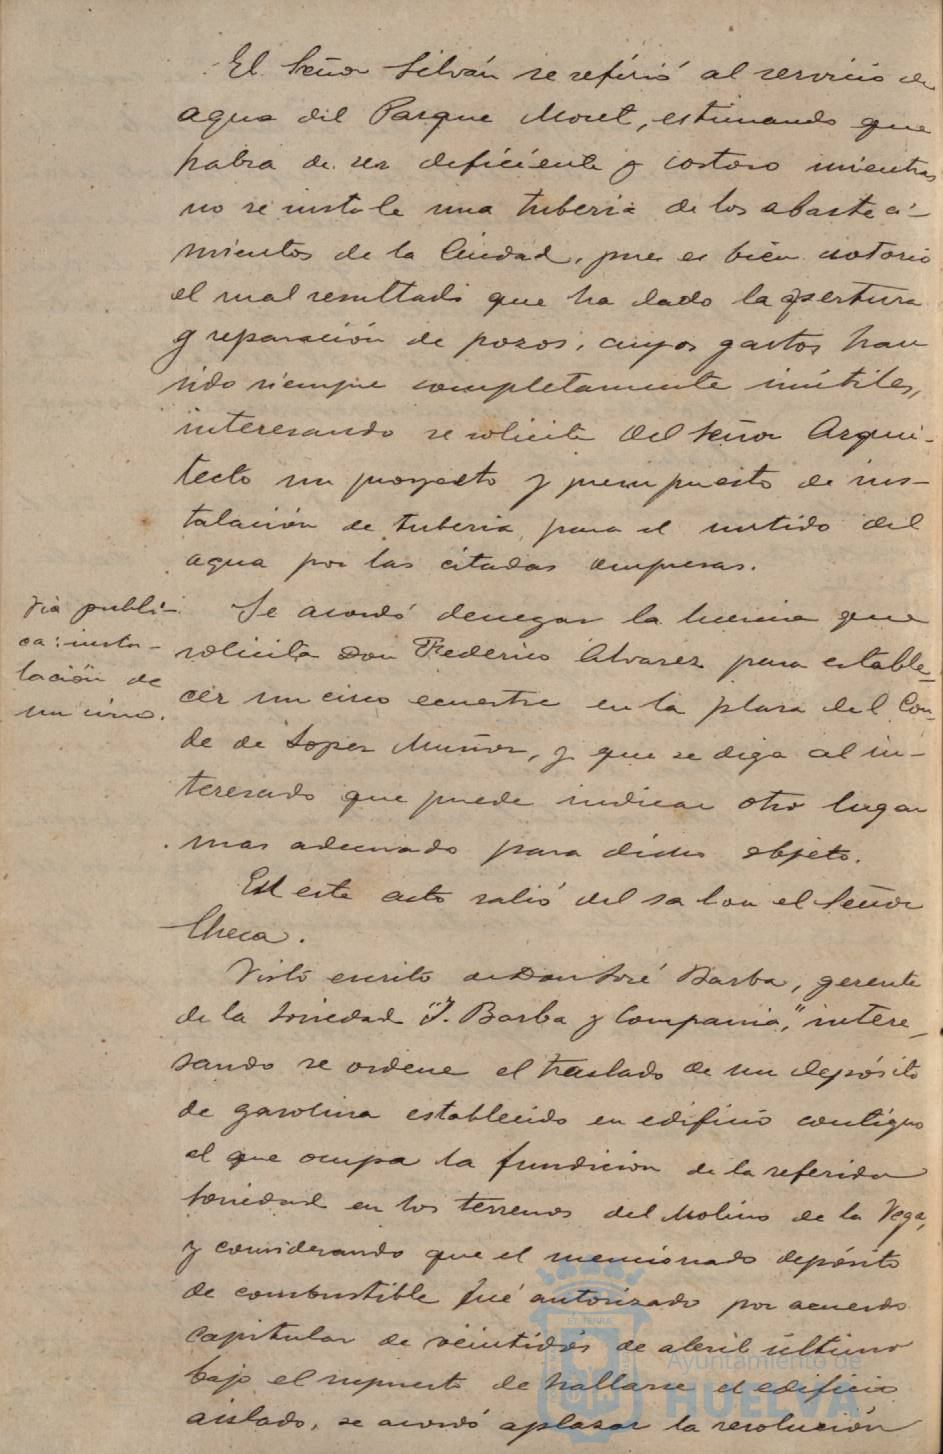 El Señor Silván se refirió al servicio de
agua del Parque Moret, estimando que
habra de ser deficiente y costoso mientras
no se instale una tuberia de los abasteci-
mientos de la Ciudad, pues es bien notorio
el mal resultado que ha dado la apertura
y reparación de pozos, cuyos gastos han
sido siempre completamente inútiles,
interesando se solicite del Señor Arqui-
tecto un proyecto y presupuesto de ins-
talación de tuberia para el surtido del
agua por las citadas empresas.
Via publi-
ca: insta-
lación de
un circo.
Se acordó denegar la licencia que
solicita Don Federico Alvarez para estable-
cer un circo ecuestre en la plaza del Con-
de de Lopez Muñoz, y que se diga al in-
teresado que puede indicar otro lugar
mas adecuado para dicho objeto.
En este acto salió del salon el Señor
Checa.
Visto escrito de Don José Barba, gerente
de la Sociedad "J. Barba y Compania," intere-
sando se ordene el traslado de un depósito
de gasolina establecido en edificio contiguo
al que ocupa la fundicion de la referida
Sociedad en los terrenos del Molino de la Vega,
y considerando que el mencionado depósito
de combustible fué autorizado por acuerdo
capitular de veintidós de abril último
bajo el supuesto de hallarse el edificio
aislado, se acordó aplazar la resolución
Ayuntamiento de
HUELVA